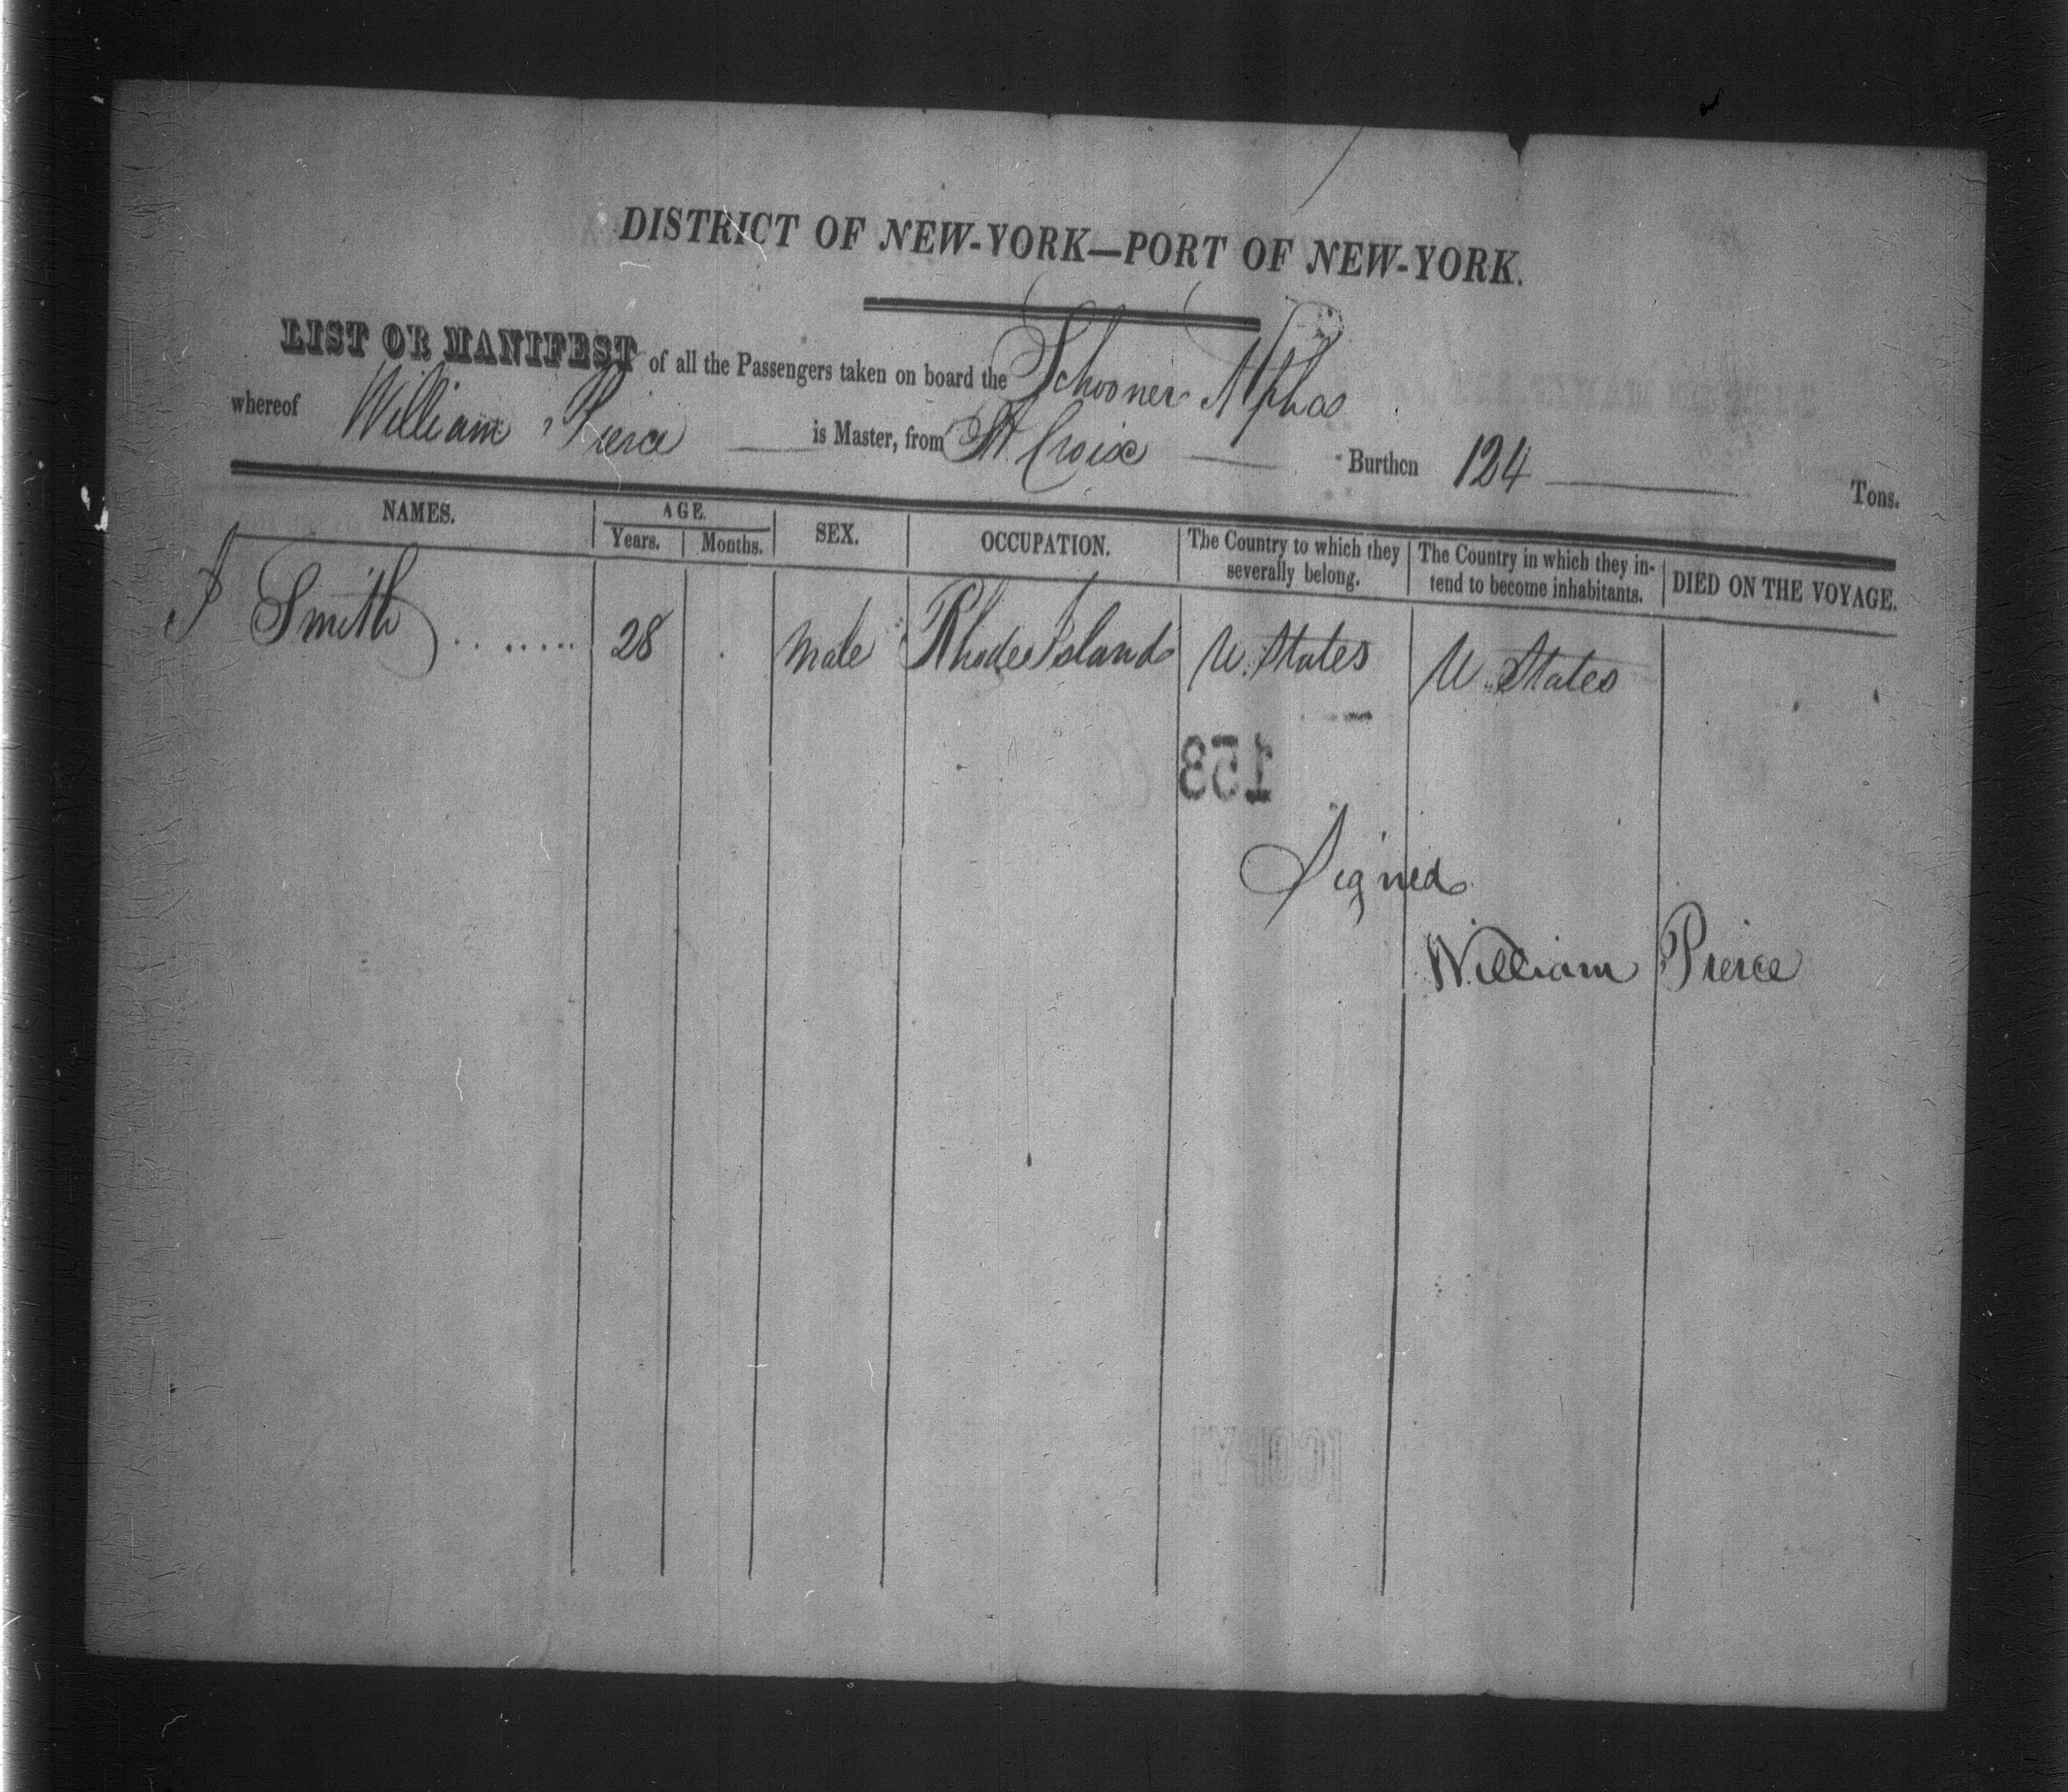 DISTRICT OF NEW-YORK—PORT OF NEW-YORK.
LIST OR MANIFEST of all the Passengers taken on board the Schooner Alpha
whereof William Pierce is Master, from St. Croix Burthen 124 Tons.
NAMES. AGE. SEX. OCCUPATION. The Country to which they severally belong. The Country in which they intend to become inhabitants. DIED ON THE VOYAGE.
Years. Months.
J Smith ........ 28 . Male Rhode Island U. States U. States
153
Signed
William Pierce
[COPY]